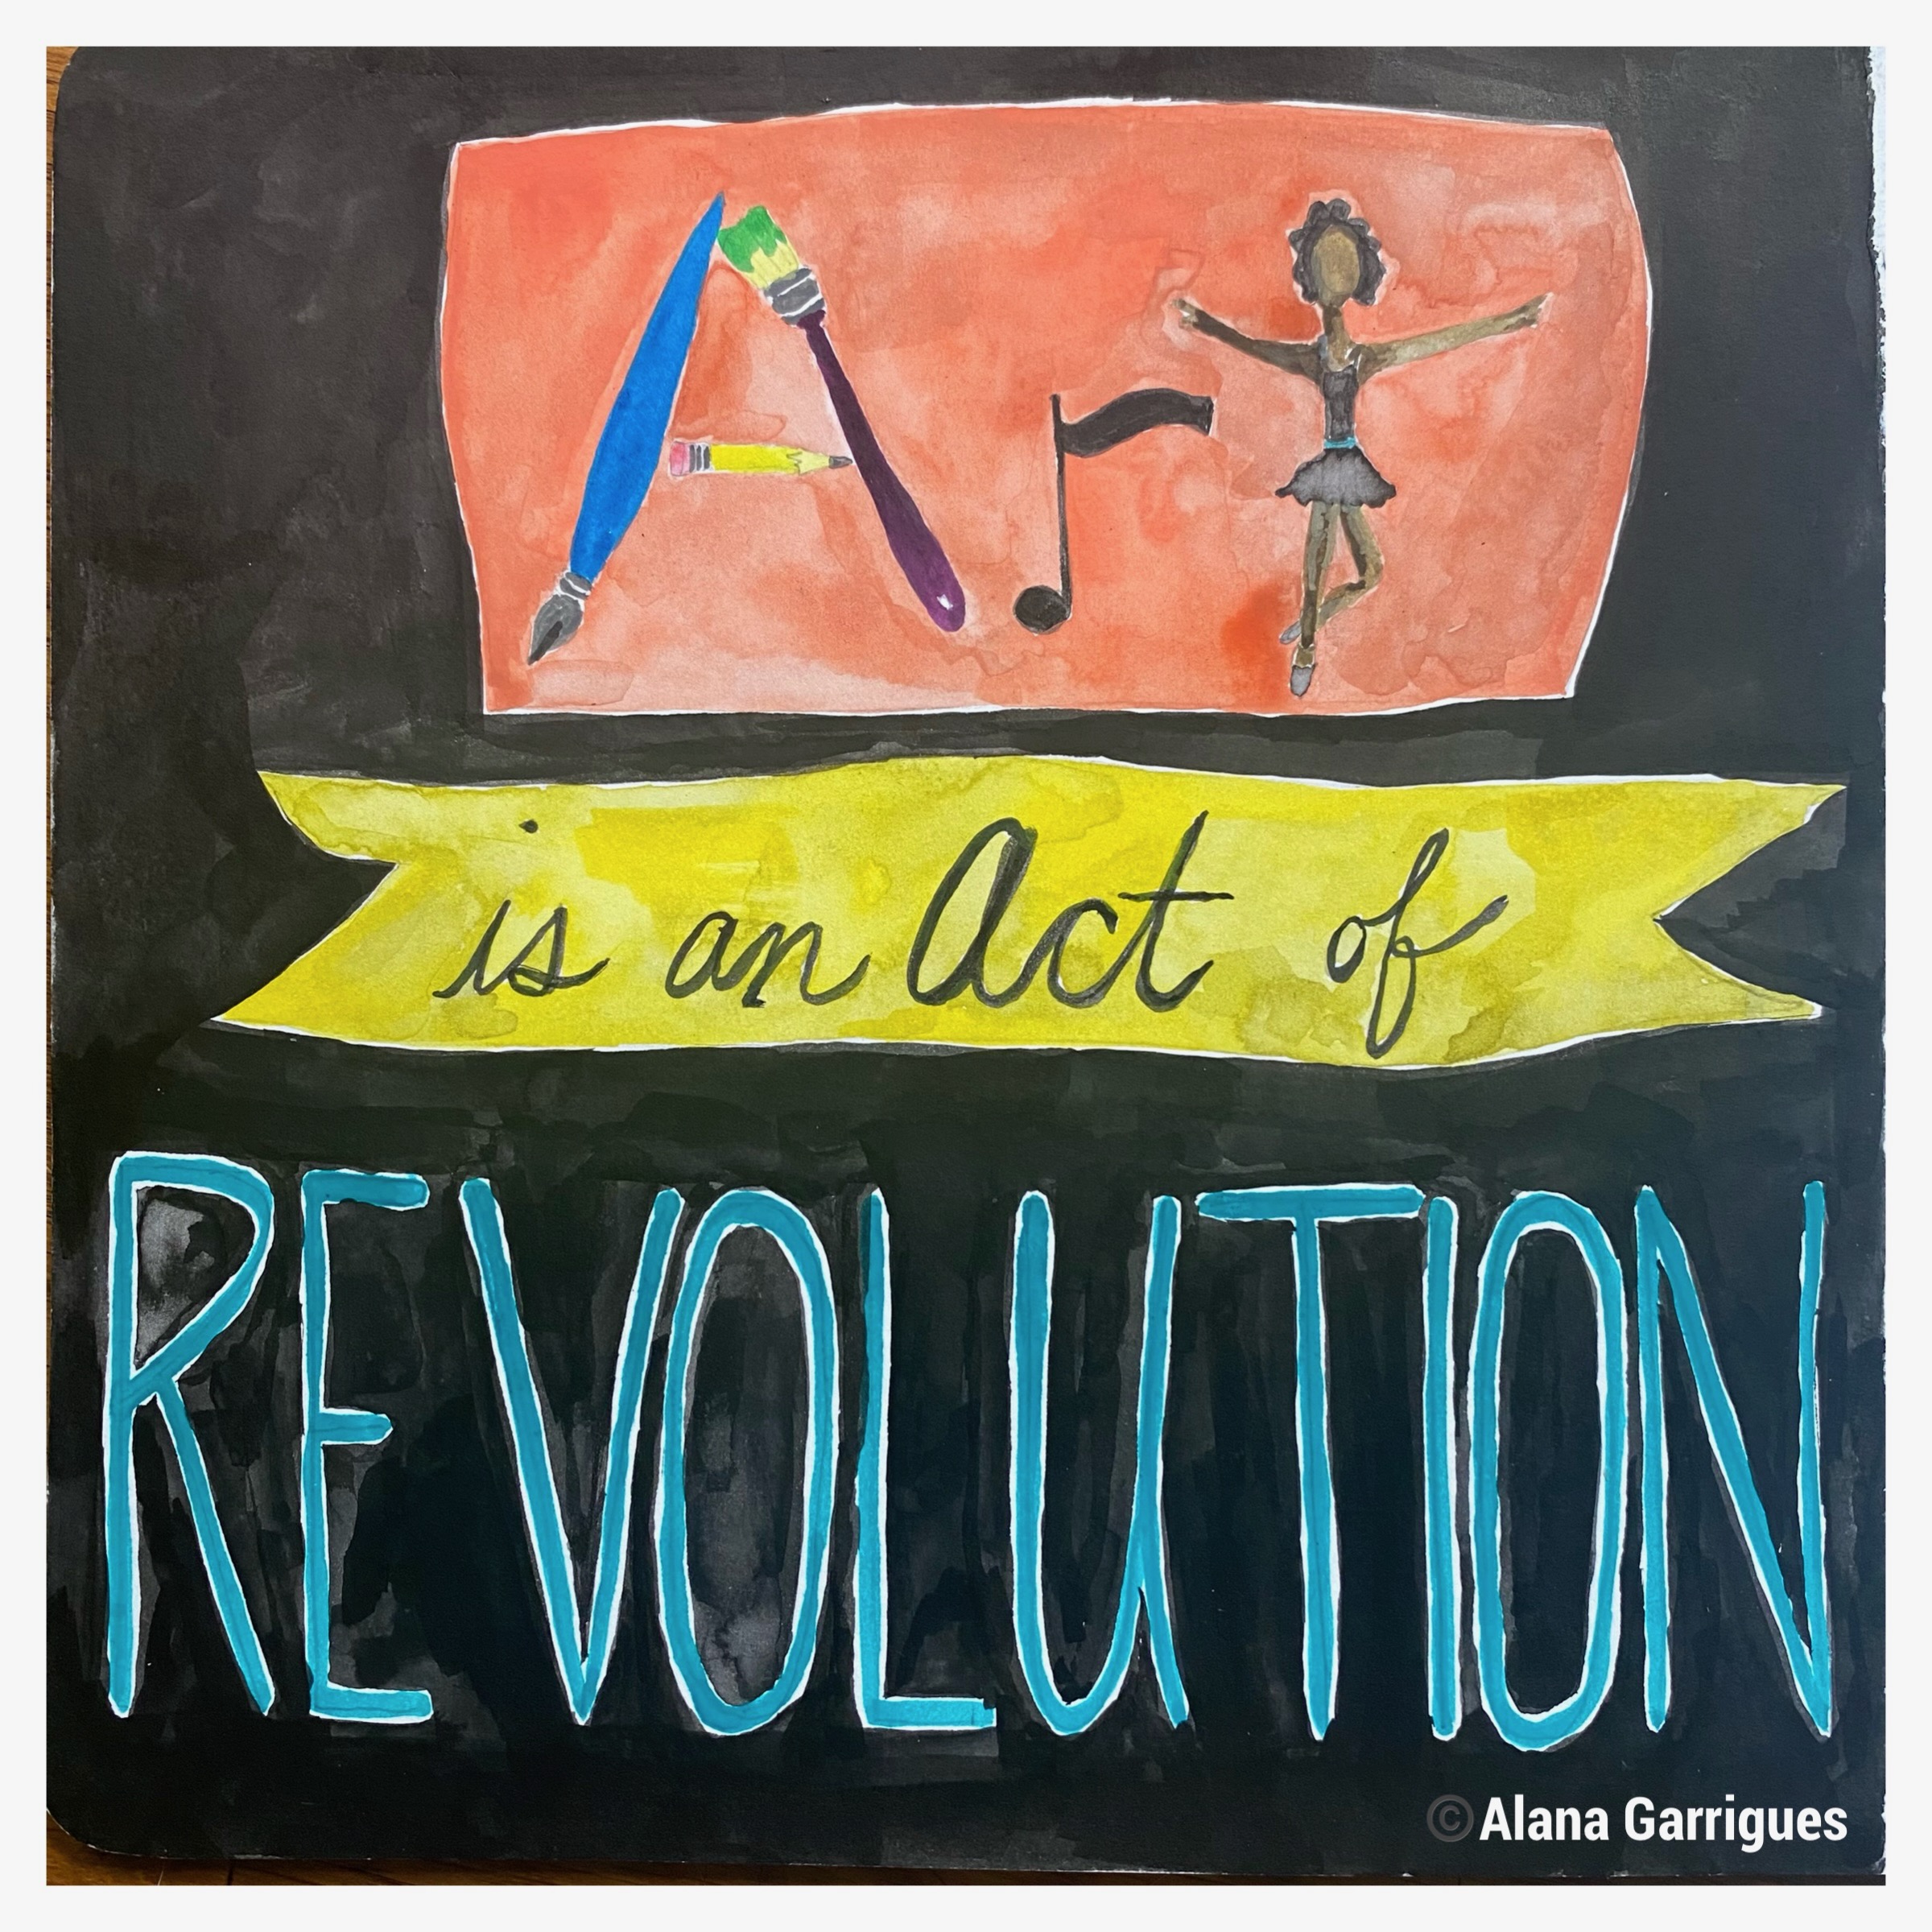 Art
is an Act of
REVOLUTION
©Alana Garrigues